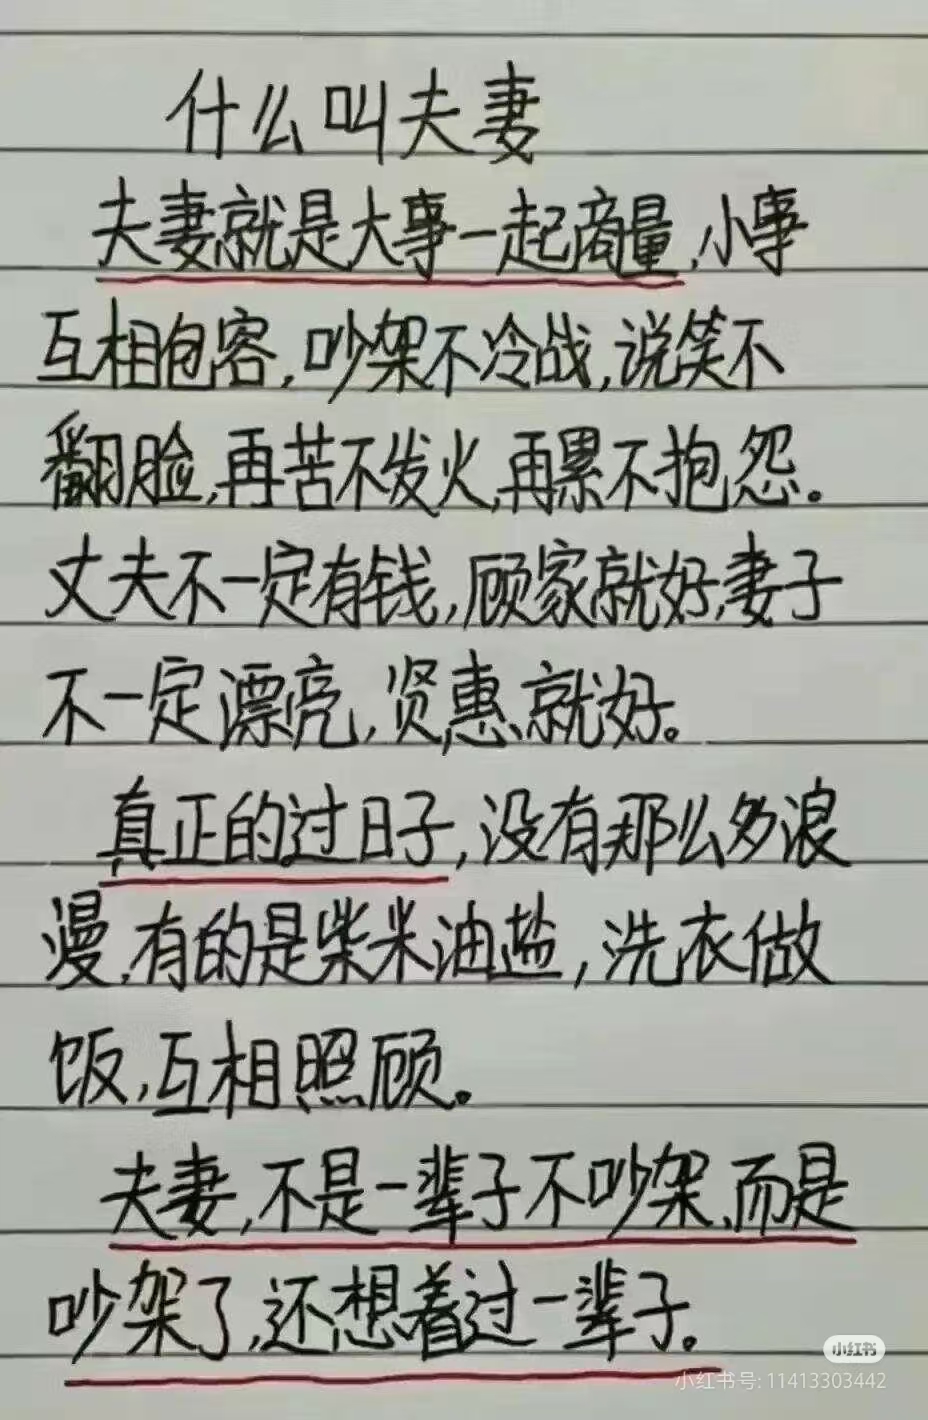 什么叫夫妻
夫妻就是大事一起商量,小事
互相包容,吵架不冷战,说笑不
翻脸,再苦不发火,再累不抱怨。
丈夫不一定有钱,顾家就好,妻子
不一定漂亮,贤惠就好。
真正的过日子,没有那么多浪
漫,有的是柴米油盐,洗衣做
饭,互相照顾。
夫妻,不是一辈子不吵架,而是
吵架了,还想着过一辈子。
小红书
小红书号: 11413303442